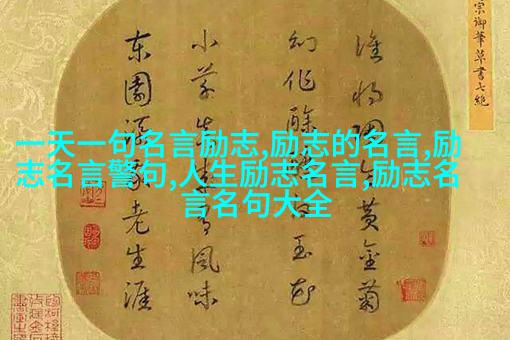 宗御筆草書七絕
誰將黃金菊
幻作酴白玉花
小草風味
東園添老生涯
一天一句名言励志,励志的名言,励
志名言警句,人生励志名言,励志名
言名句大全